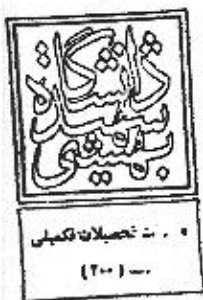 دانشگاه
شهید
بهشتی
ت تحصیلات تکمیلی
(۲۰۰)